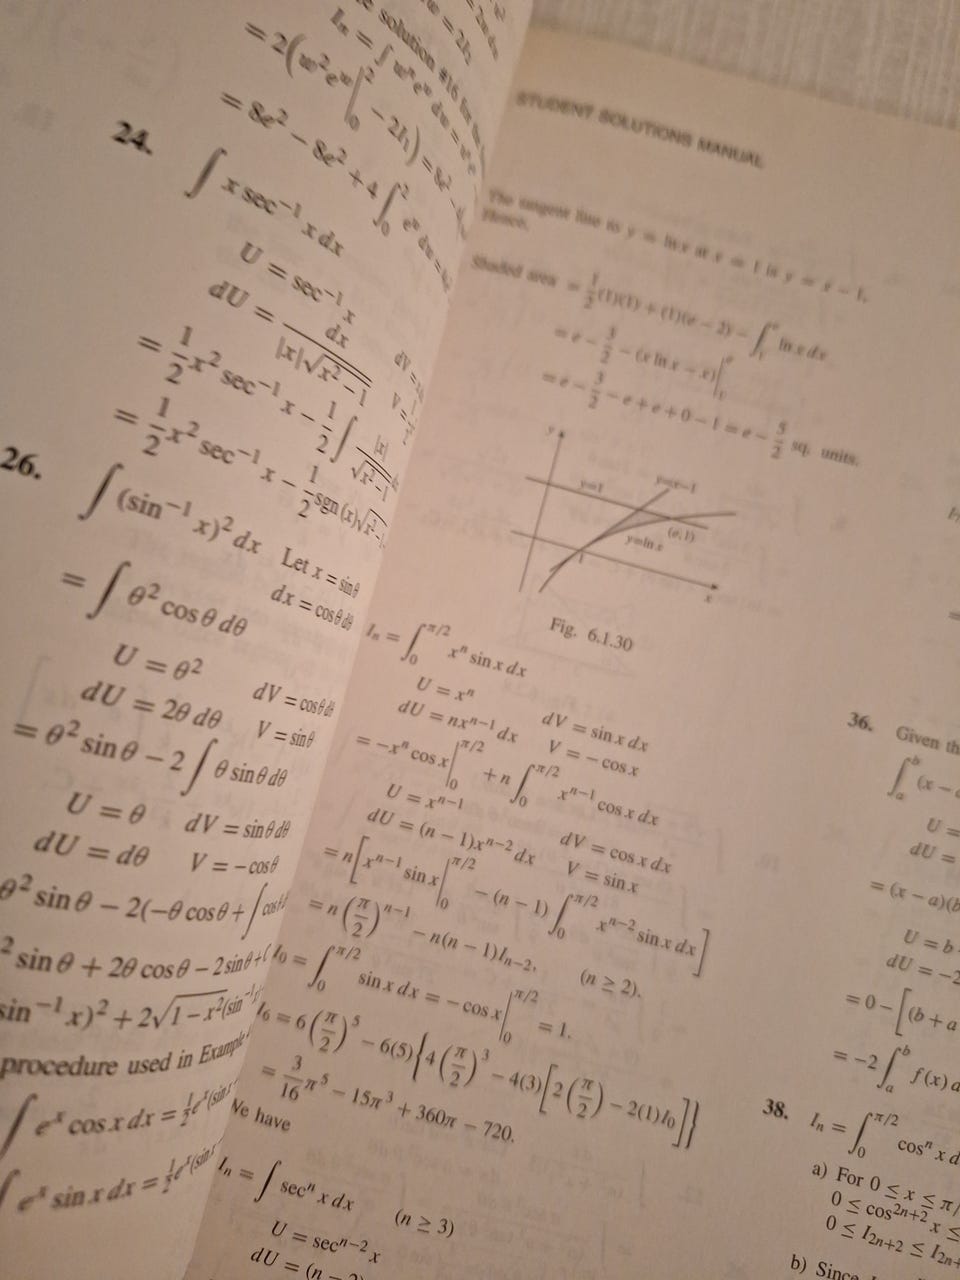 = 2h
e solution #16 for the
Iₙ = ∫ wⁿeʷ dw = wⁿe
= 2(w²eʷ|₀² − 2I₁) = 8e²
= 8e² − 8e² + 4∫₀² eʷ dw =
24. ∫ x sec⁻¹ x dx
U = sec⁻¹ x dV =
dU = dx/(|x|√(x² − 1)) V =
= 1/2 x² sec⁻¹ x − 1/2 ∫ |x|/√(x² − 1)
= 1/2 x² sec⁻¹ x − 1/2 sgn (x)√(x² − 1
26. ∫ (sin⁻¹ x)² dx Let x = sin θ
dx = cos θ dθ
= ∫ θ² cos θ dθ
U = θ² dV = cos θ dθ
dU = 2θ dθ V = sin θ
= θ² sin θ − 2 ∫ θ sin θ dθ
U = θ dV = sin θ dθ
dU = dθ V = − cos θ
θ² sin θ − 2(−θ cos θ + ∫ cos θ
² sin θ + 2θ cos θ − 2 sin θ + C
sin⁻¹ x)² + 2√(1 − x²)(sin⁻¹
procedure used in Example
∫ eˣ cos x dx = 1/2 eˣ(sin
∫ eˣ sin x dx = 1/2 eˣ(sin
STUDENT SOLUTIONS MANUAL
The tangent line to y = ln x at x = 1 is y = x − 1,
Hence,
Shaded area = 1/2 (1)(1) + (1)(e − 2) − ∫₁ᵉ ln x dx
= e − 3/2 − (x ln x − x)|₁ᵉ
= e − 3/2 − e + e + 0 − 1 = e − 5/2 sq. units.
y
y=1
y=x−1
(e,1)
y=ln x
1
x
Fig. 6.1.30
Iₙ = ∫₀^(π/2) xⁿ sin x dx
U = xⁿ dV = sin x dx
dU = nxⁿ⁻¹ dx V = − cos x
= −xⁿ cos x|₀^(π/2) + n ∫₀^(π/2) xⁿ⁻¹ cos x dx
U = xⁿ⁻¹ dV = cos x dx
dU = (n − 1)xⁿ⁻² dx V = sin x
= n[xⁿ⁻¹ sin x|₀^(π/2) − (n − 1) ∫₀^(π/2) xⁿ⁻² sin x dx]
= n(π/2)ⁿ⁻¹ − n(n − 1)Iₙ₋₂, (n ≥ 2).
I₀ = ∫₀^(π/2) sin x dx = − cos x|₀^(π/2) = 1.
I₆ = 6(π/2)⁵ − 6(5){4(π/2)³ − 4(3)[2(π/2) − 2(1)I₀]}
= 3/16 π⁵ − 15π³ + 360π − 720.
We have
Iₙ = ∫ secⁿ x dx (n ≥ 3)
U = secⁿ⁻² x
dU = (n − 2)
36. Given th
∫ₐᵇ (x −
U =
dU =
= (x − a)(b
U = b
dU = −2
= 0 − [(b + a
= −2 ∫ₐᵇ f(x) d
38. Iₙ = ∫₀^(π/2) cosⁿ x d
a) For 0 ≤ x ≤ π/
0 ≤ cos²ⁿ⁺² x ≤
0 ≤ I₂ₙ₊₂ ≤ I₂ₙ₊
b) Since